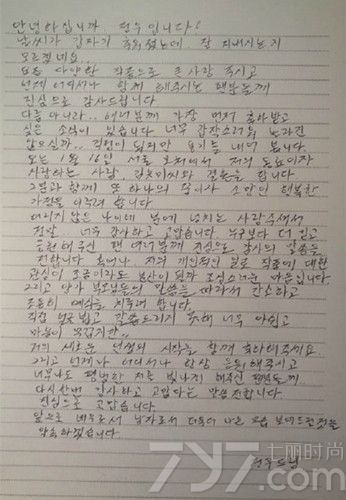 안녕하십니까 정우입니다!
날씨가 갑자기 추워졌는데 잘 지내시는지
모르겠네요.
요즘 다양한 작품으로 큰 사랑 주시고
언제 어디서나 함께 해주시는 팬분들께
진심으로 감사드립니다
다름 아니라.. 여러분께 가장 먼저 축하받고
싶은 소식이 있습니다 너무 갑작스러워 놀라진
않으실까.. 걱정이 되지만 용기를 내어 봅니다
오는 1월 16일 서울 모처에서 저의 동료이자
사랑하는 사람, 김유미씨와 결혼을 합니다.
그분과 함께 또 하나의 동반자 소박한 행복한
가정을 이루려 합니다
어리지 않은 나이에 분에 넘치는 사랑주셔서
정말.. 너무 감사하고 고맙습니다 누구보다 더 믿고
응원해주신 팬 여러분께 진심으로 감사의 말씀을
전합니다 혹여나.. 저의 개인적인 일로 작품에 대한
관심이 조금이라도 분산이 될까 조심스러운 마음입니다.
그리고 양가 부모님들의 말씀을 따라서 간소하고
조용히 예식을 치루려 합니다.
직접 얼굴뵙고 말씀드리지 못해 너무 아쉽고
마음이 무겁지만..
저의 새로운 인생의 시작을 함께 축하해주세요.
그리고 언제나 어디서나 항상 응원해주시고
너무나도 평범한 저를 빛나게 해주신 팬분들께
다시한번 감사하고 고맙다는 말씀전합니다.
진심으로 고맙습니다
앞으로 배우로서 남자로서 더욱더 나은 모습 보여드릴것을
약속하겠습니다.
정우드림
7y7.com
七丽时尚